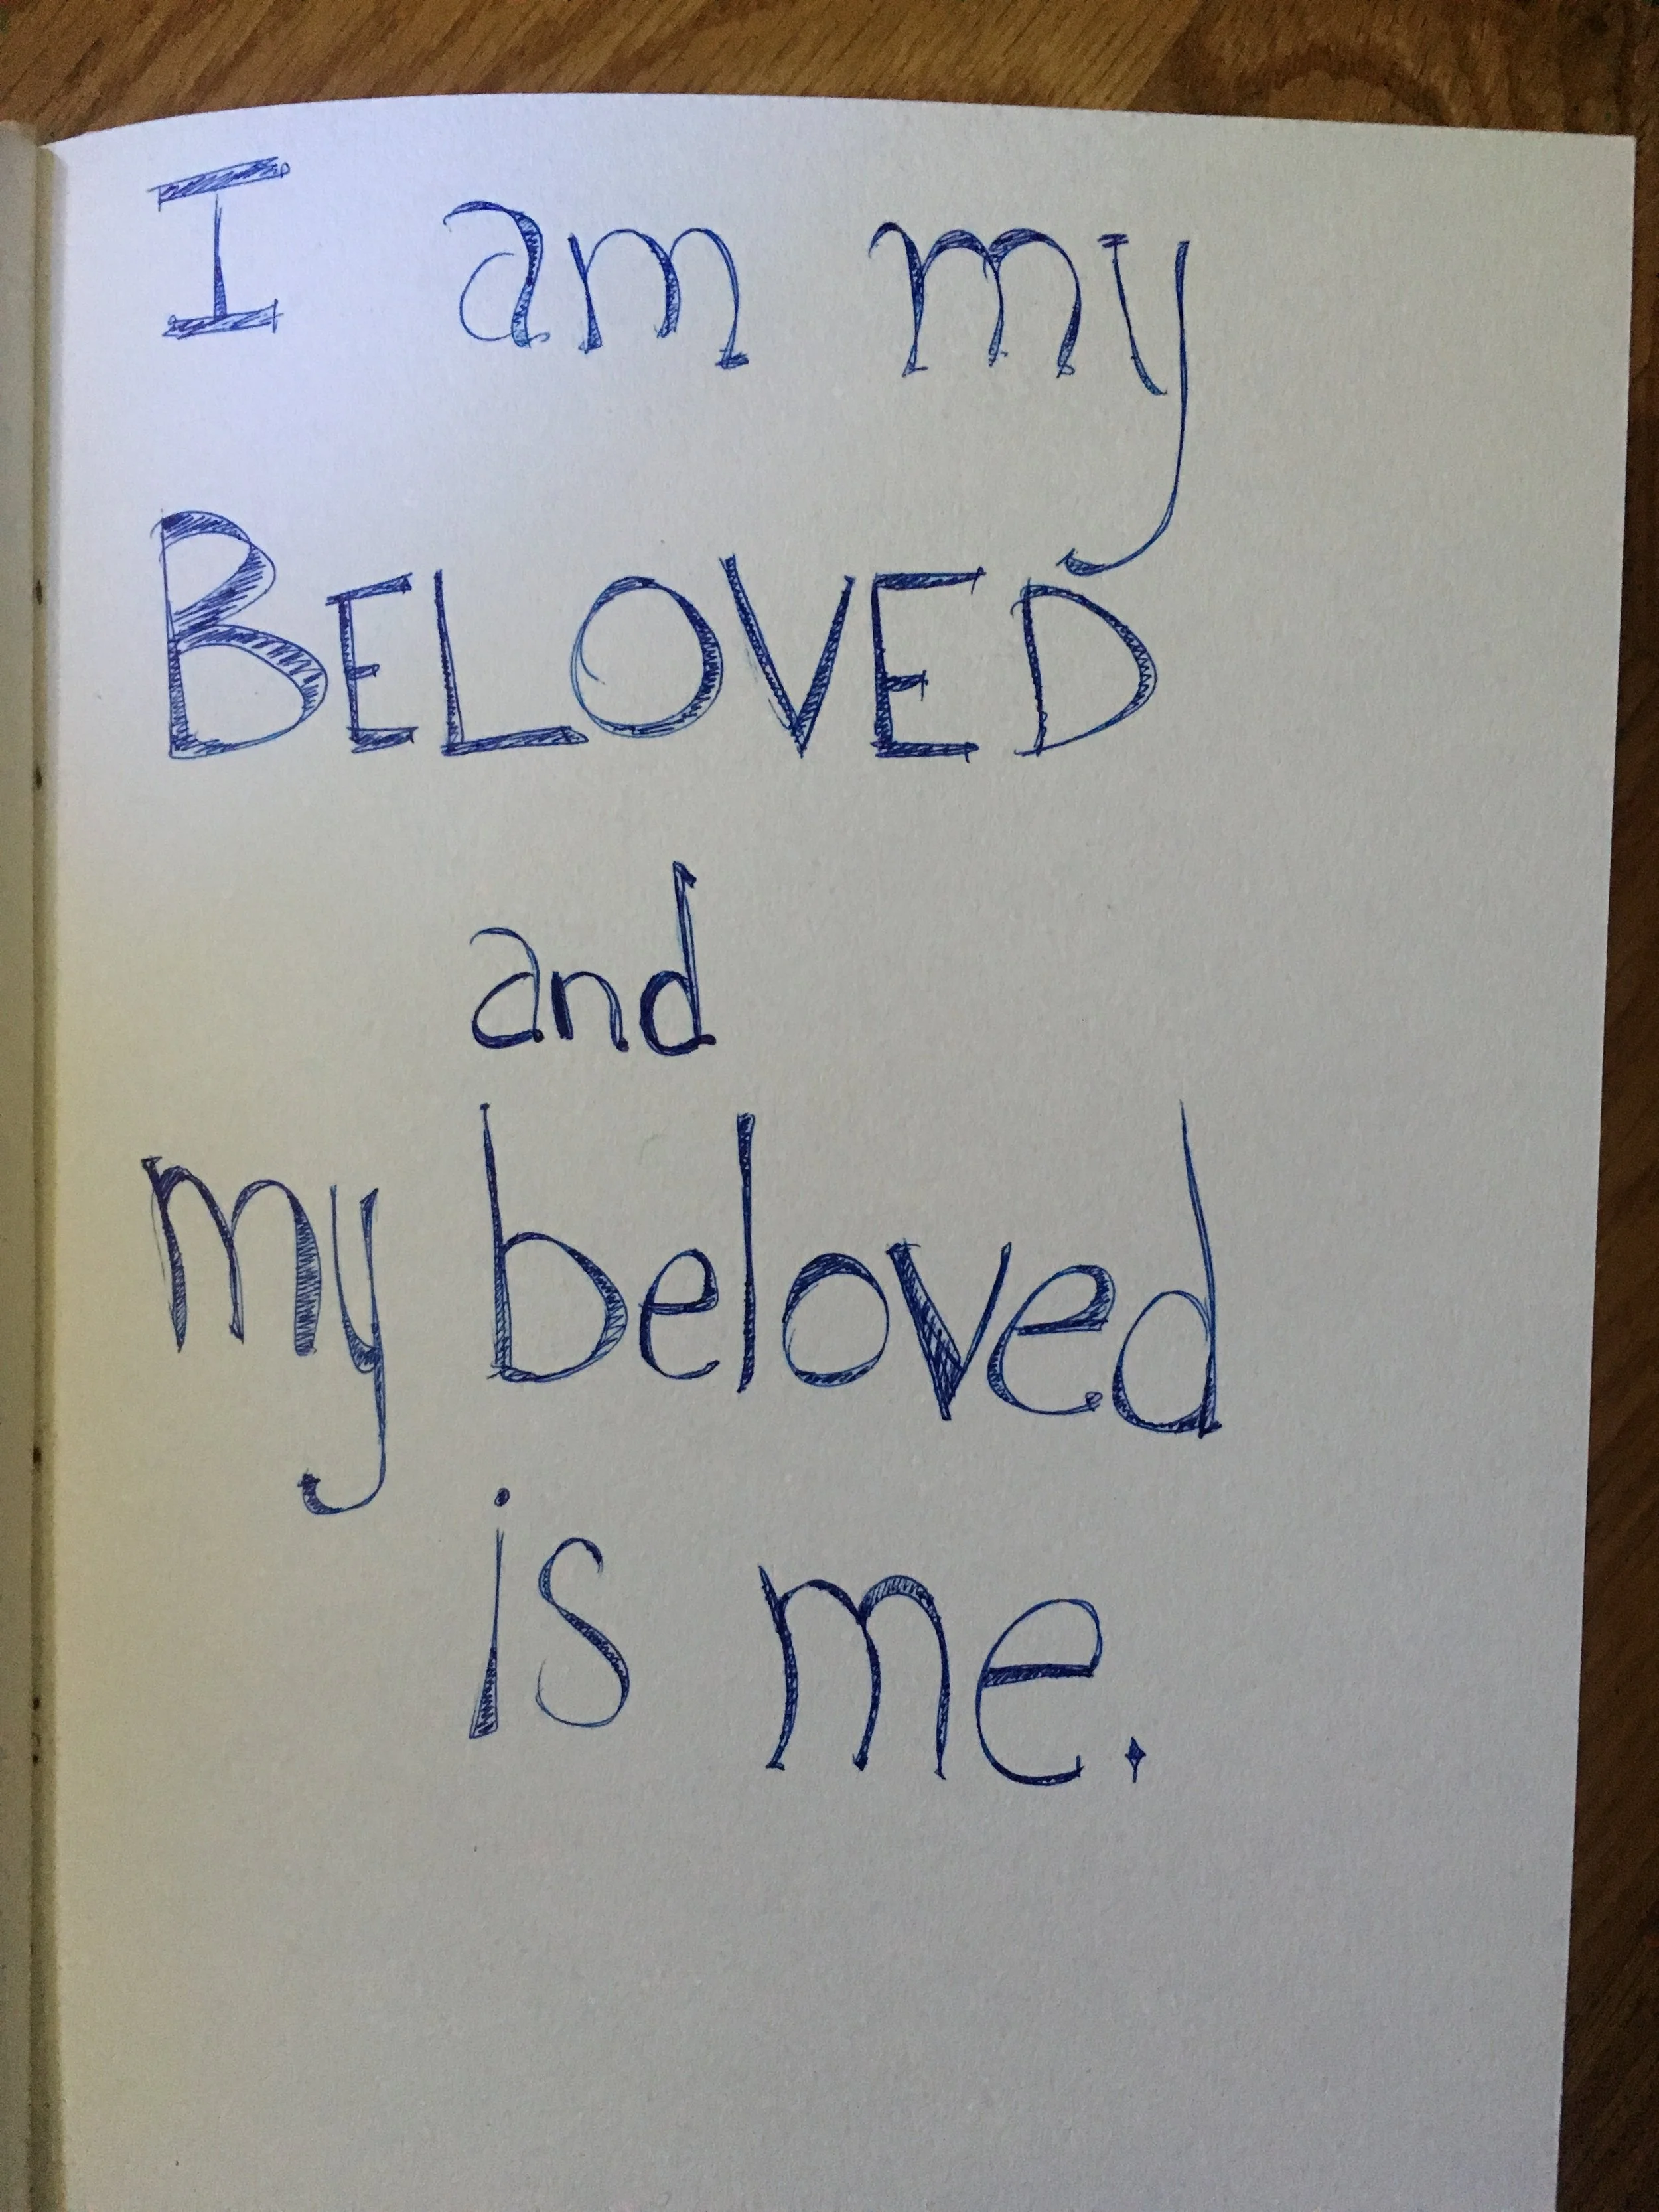 I am my
BELOVED
and
my beloved
is me.